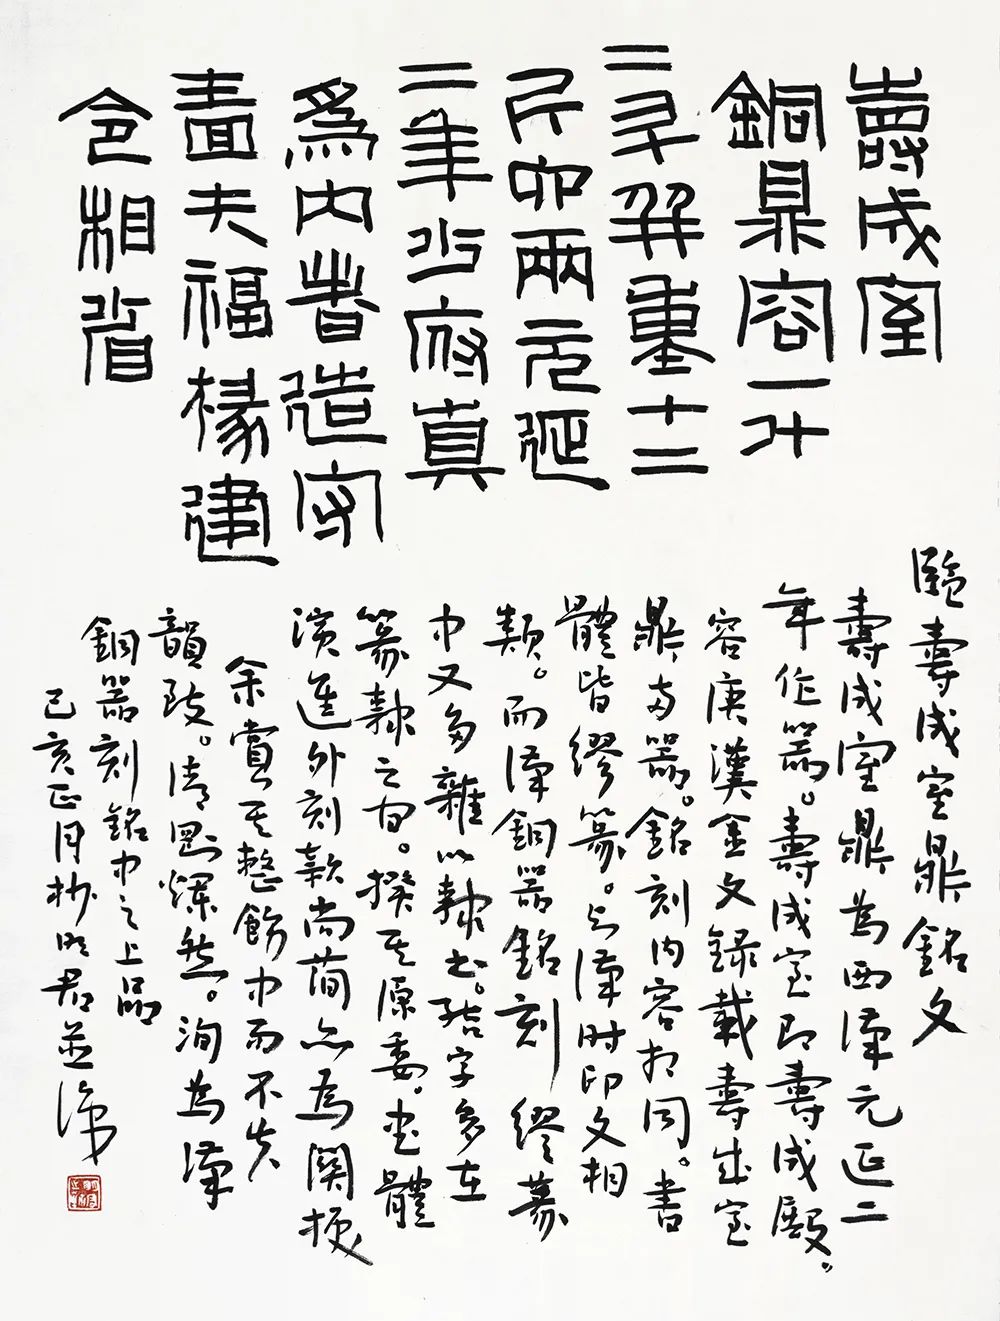 壽成室
銅鼎容一升
二斗并重十二
斤卯兩二元延
二年少府真
為內者造守
嗇夫福掾建
令相省
臨壽成室鼎銘文
壽成室鼎為西漢元延二
年作器。壽成室即壽成殿。
容庚漢金文錄載壽成室
鼎兩器。銘刻內容相同。書
體皆繆篆。與漢時印文相
類。而漢銅器銘刻繆篆
中又多雜以隸書。結字多在
篆隸之間。揆其原委。書體
演進外刻款尚簡亦為關捩
余賞其整飭中而不失
韻致。清剛爍然。洵為漢
銅器刻銘中之上品
己亥正月抄明君並識